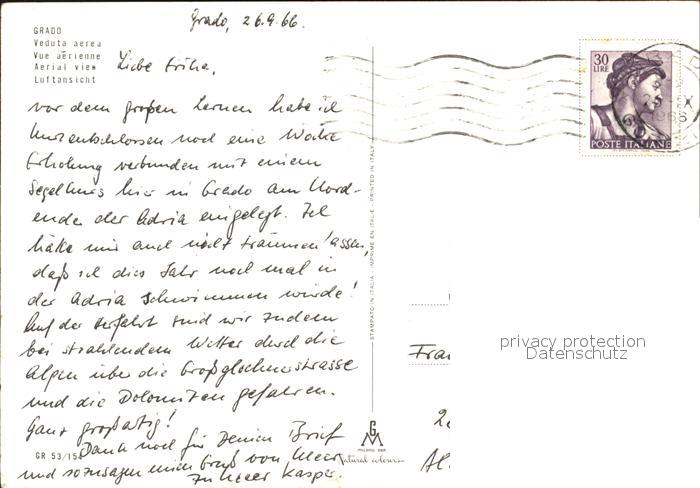 Grado, 26.9.66.
GRADO
Veduta aerea
Vue aérienne
Aerial view
Luftansicht
Liebe Erika,
vor dem großen Lernen habe ich
kurzentschlossen noch eine Woche
Erholung verbunden mit einem
Segelkurs hier in Grado am Nord-
ende der Adria eingelegt. Ich
hätte mir auch nicht träumen lassen,
daß ich dies Jahr noch mal in
der Adria schwimmen würde!
Auf der Herfahrt sind wir zudem
bei strahlendem Wetter durch die
Alpen über die Großglocknerstrasse
und die Dolomiten gefahren.
Ganz großartig!
Dank noch für Deinen Brief
und sozusagen einen Gruß von Meer
zu Meer Kaspar.
GR 53/15
STAMPATO IN ITALIA - IMPRIMÉ EN ITALIE - PRINTED IN ITALY
MILANO
natural colours
30
LIRE
POSTE ITALIANE
X
1966
Fra
privacy protection
Datenschutz
2
Al